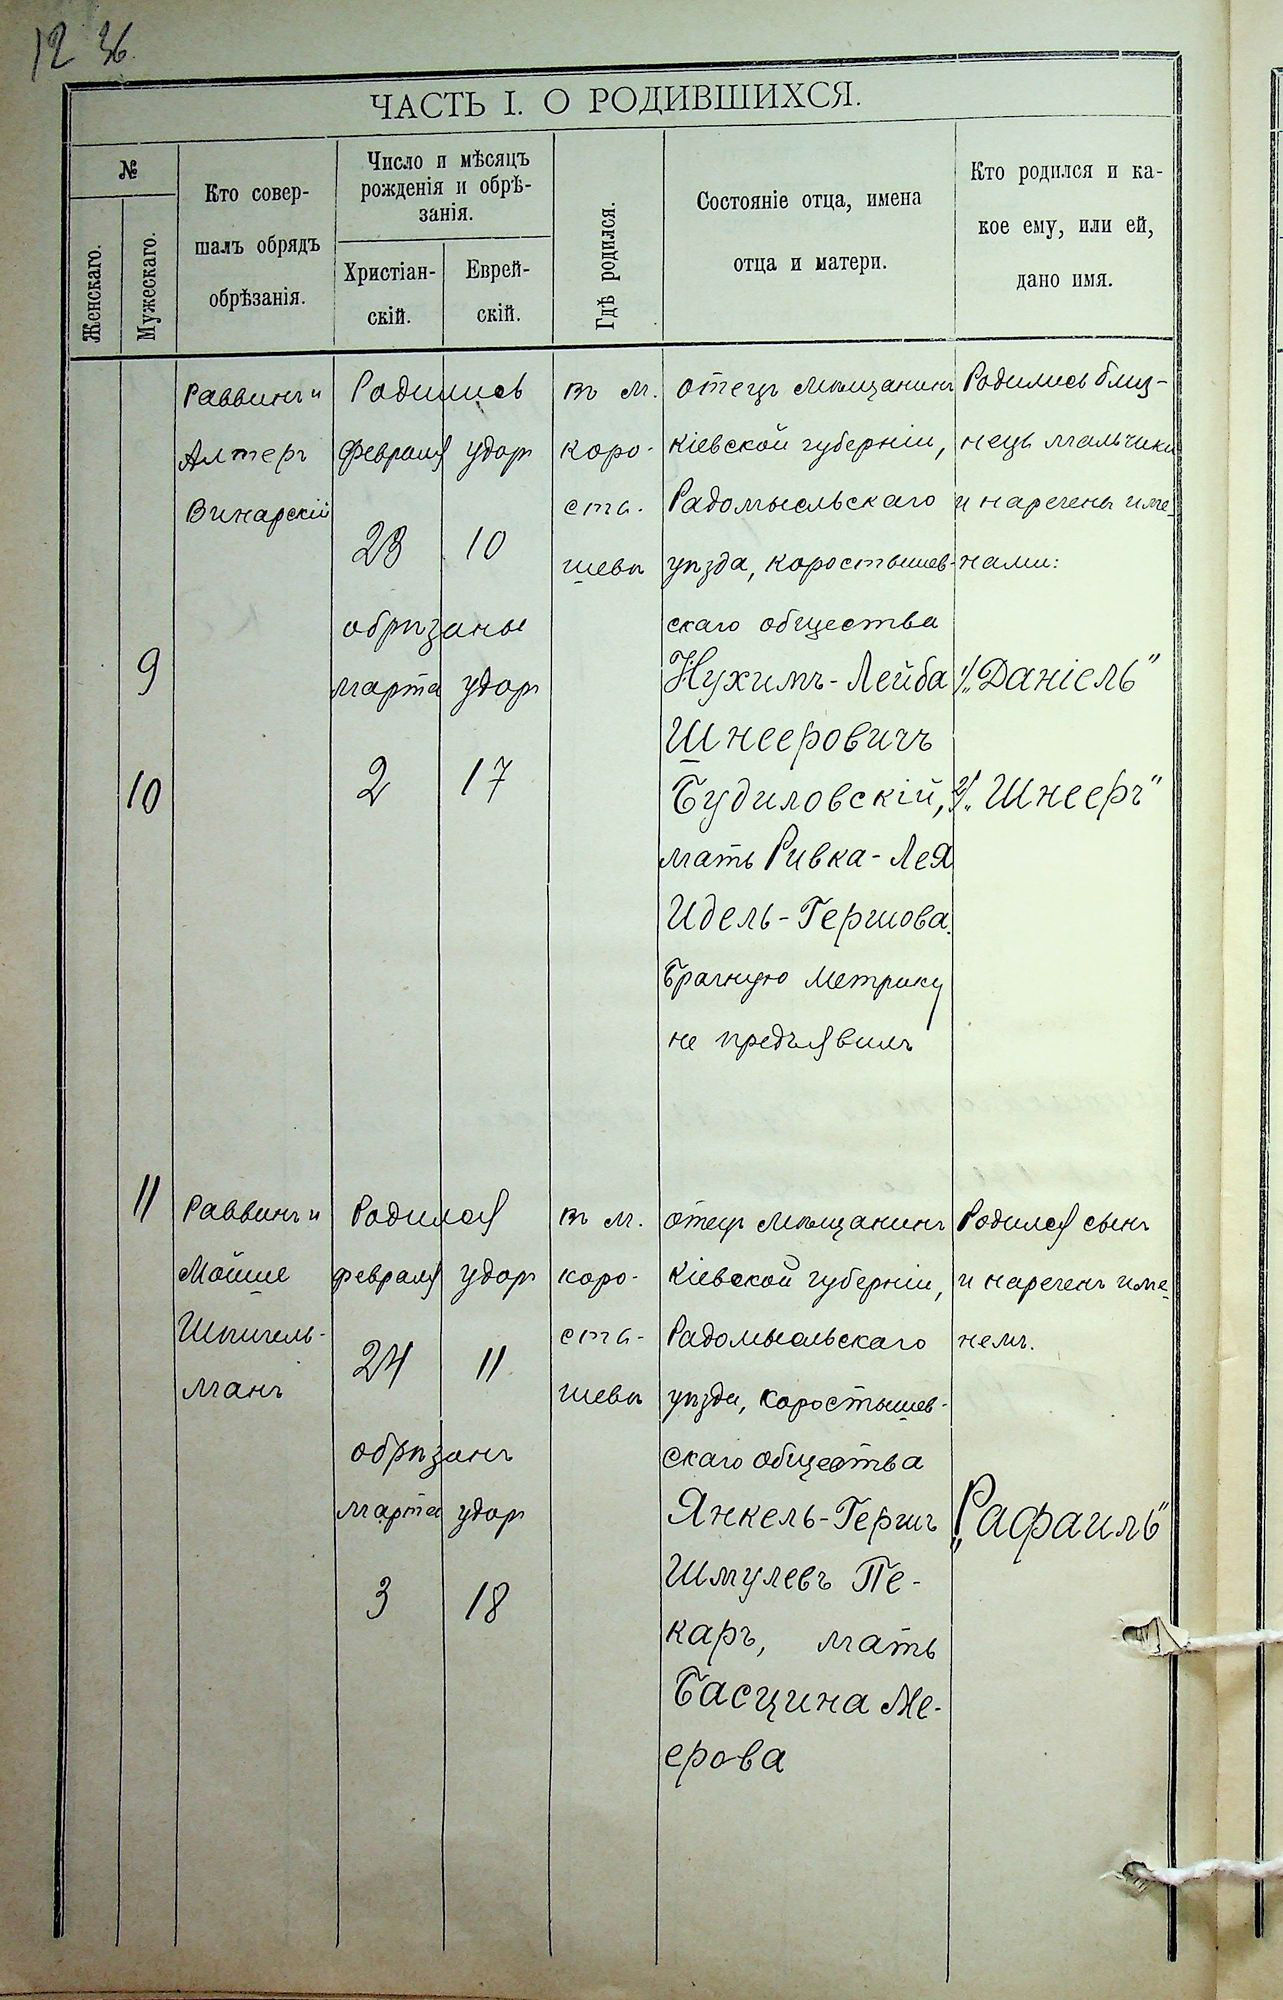 12 36
ЧАСТЬ I. О РОДИВШИХСЯ.
№
Женскаго.
Мужескаго.
Кто совер-
шалъ обрядъ
обрѣзанія.
Число и мѣсяцъ
рожденія и обрѣ-
занія.
Христіан-
скій.
Еврей-
скій.
Гдѣ родился.
Состояніе отца, имена
отца и матери.
Кто родился и ка-
кое ему, или ей,
дано имя.
9
10
Раввинъ и
Алтеръ
Винарскій
Родились
февраля удоръ
23 10
обрѣзаны
марта удоръ
2 17
въ м.
Коро-
сты-
шевѣ
отецъ мѣщанинъ
Кіевской губерніи,
Радомысльскаго
уѣзда, Коростышев-
скаго общества
Нухимъ-Лейба
Шнееровичъ
Будиловскій,
мать Ривка-Лея
Идель-Гершова.
Брачную метрику
не предъявилъ
Родились близ-
нецъ мальчики
и наречены име-
нами:
1/ „Даніель"
2/ „Шнееръ"
11
Раввинъ и
Мойше
Шпигель-
манъ
Родился
февраля удоръ
24 11
обрѣзанъ
марта удоръ
3 18
въ м.
Коро-
сты-
шевѣ
отецъ мѣщанинъ
Кіевской губерніи,
Радомысльскаго
уѣзда, Коростышев-
скаго общества
Янкель-Гершъ
Шмулевъ Пе-
каръ, мать
Басцина Ме-
ерова
Родился сынъ
и нареченъ име-
немъ.
„Рафаилъ"